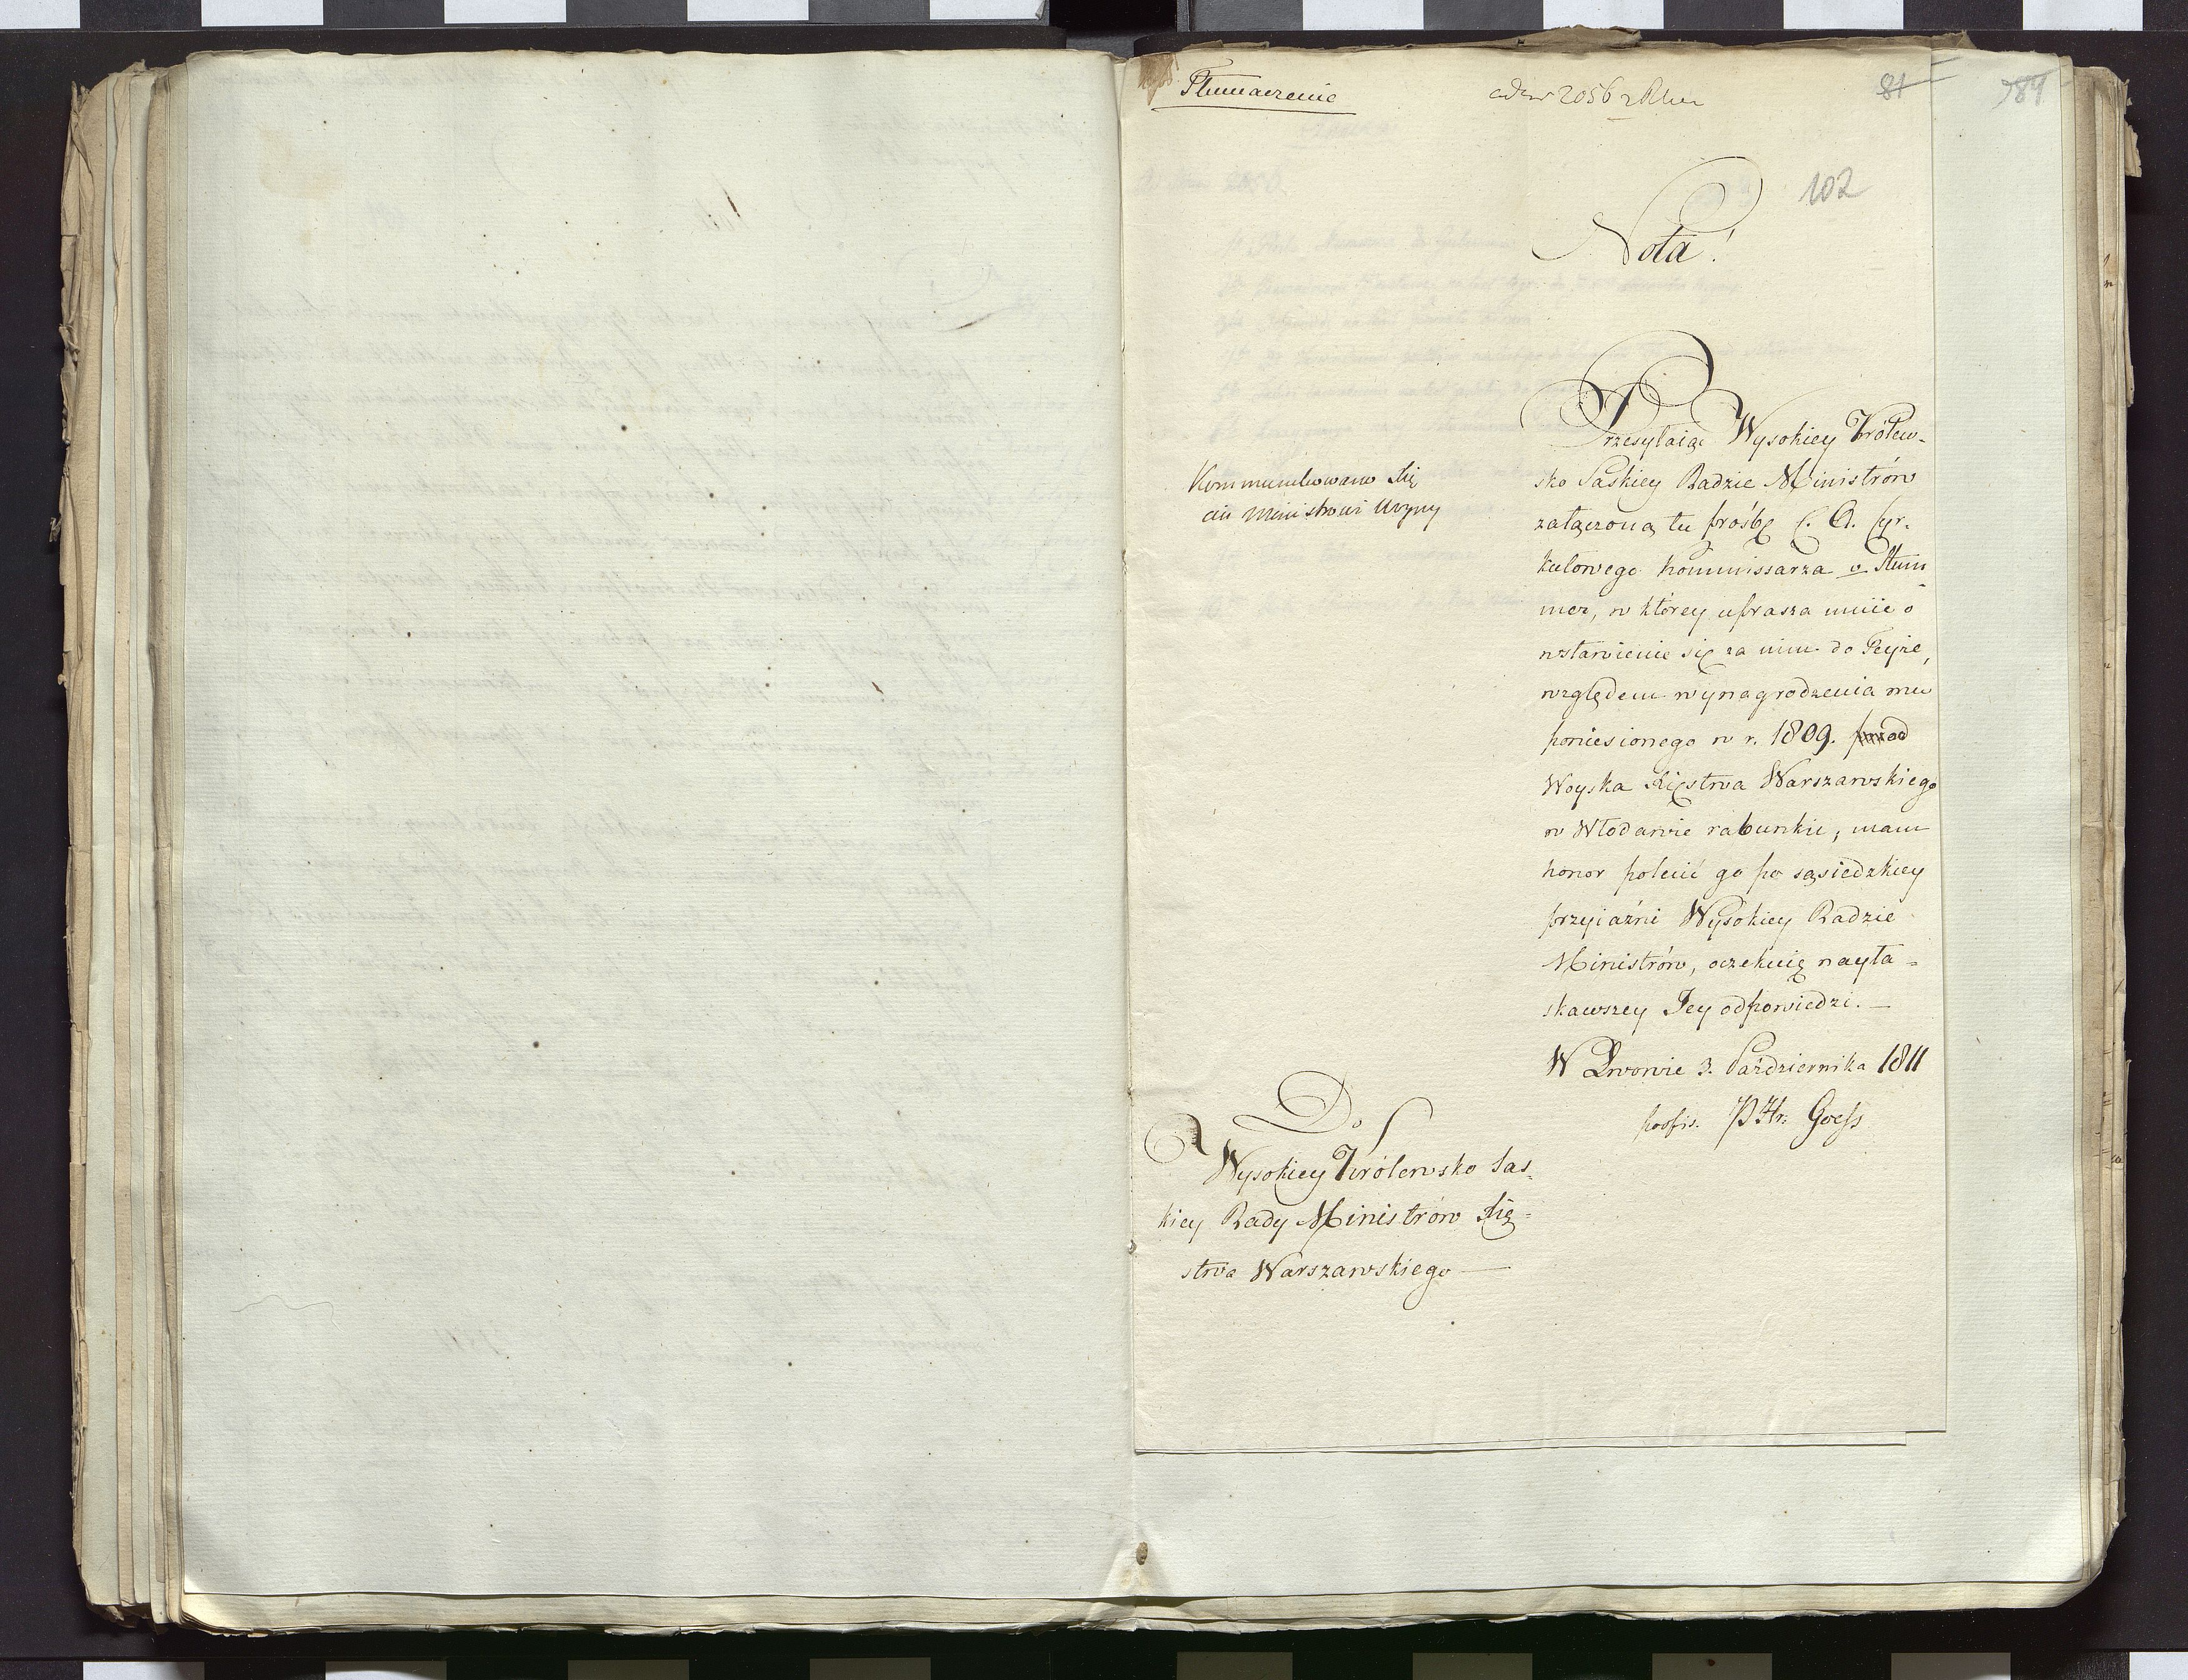 Tłumaczenie
2056
81
784
102
Nota!
Przesyłaiąc Wysokiey Królew-
sko Saskiey Radzie Ministrów
załączoną tu prośbę C. A. Cyr-
kułowego Kommissarza v Stum
mer, w którey uprasza mnie o
wstawienie się za nim do Teyże,
względem wynagrodzenia mu
poniesionego w r. 1809. od
Woyska Xięstwa Warszawskiego
w Włodawie rabunku, mam
honor polecić go po sąsiedzkiey
przyiaźni Wysokiey Radzie
Ministrów, oczekuię nayła-
skawszey Jey odpowiedzi. —
W Lwowie 3. Października 1811
podpis. P Hr: Goess
Kommunikowano
Ministrowi Woyny
Do
Wysokiey Królewsko Sas-
kiey Rady Ministrów Xię-
stwa Warszawskiego —